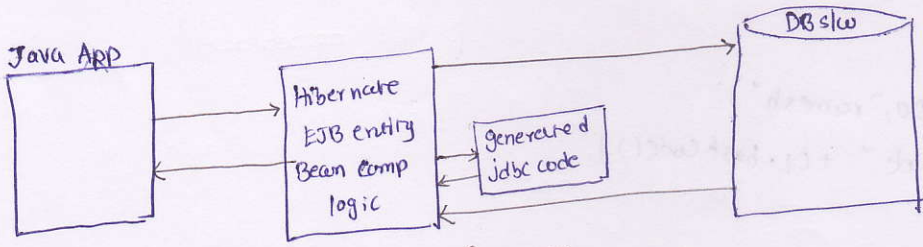 Java App
Hibernate
EJB entity
Bean comp
logic
generated
jdbc code
DB s/w